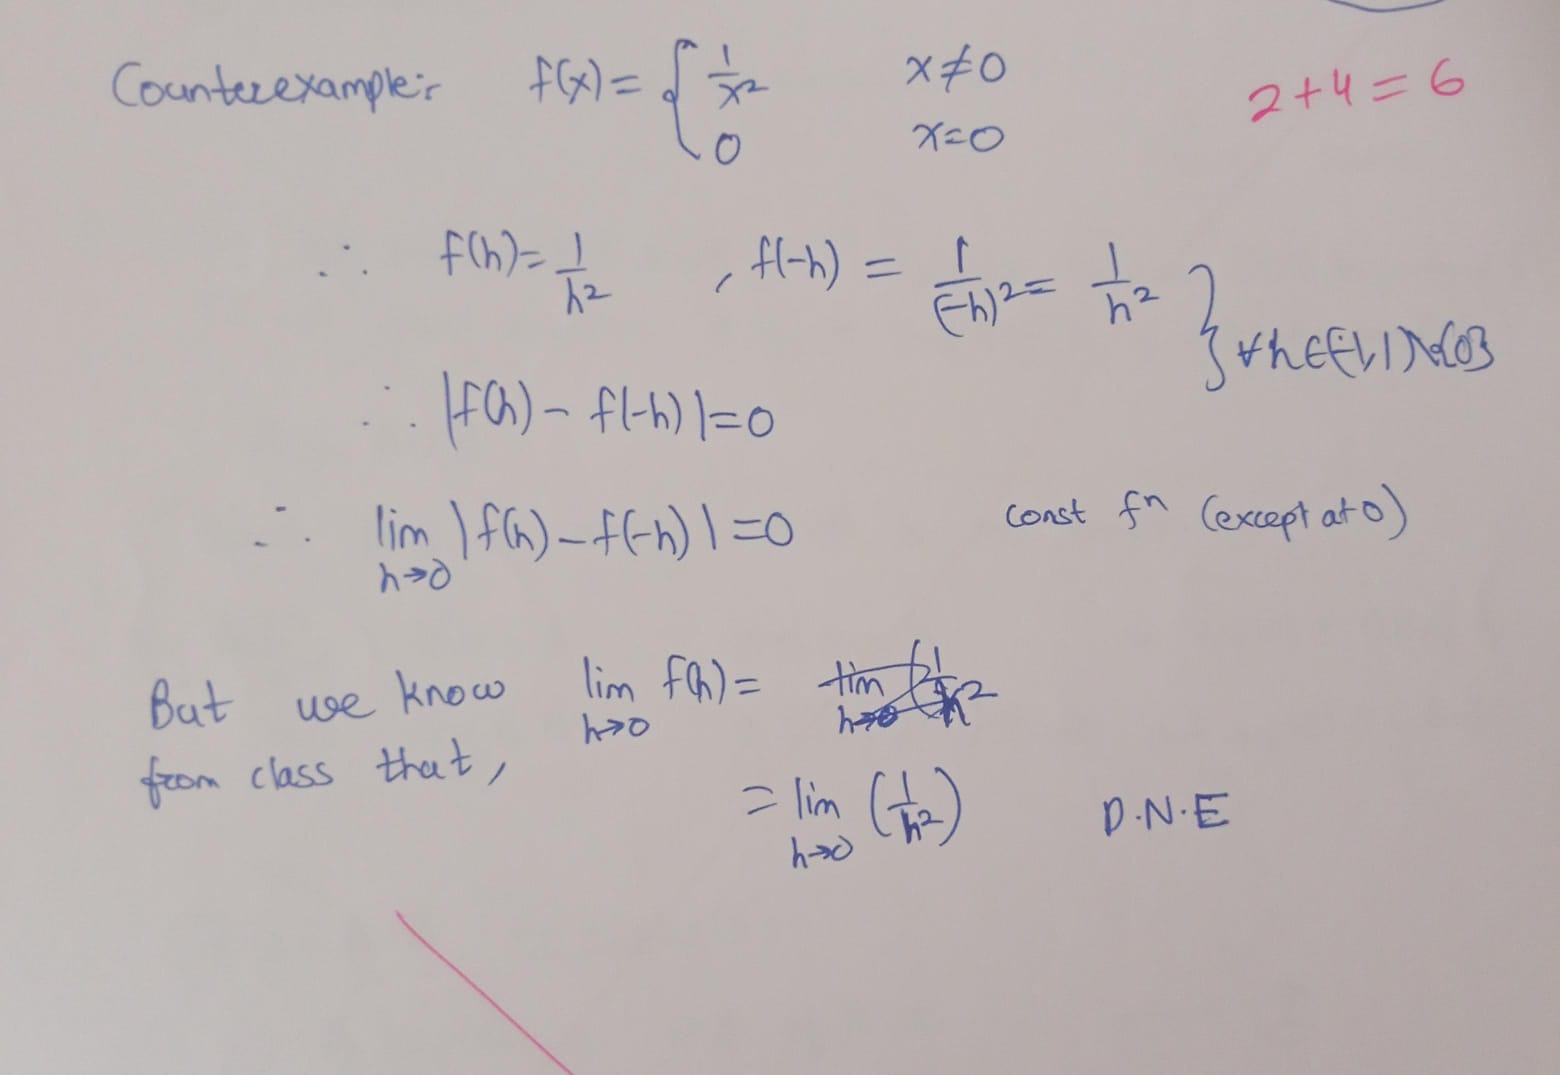 Counterexample:- f(x) = { 1/x² x≠0
0 x=0
2+4=6
∴ f(h) = 1/h² , f(-h) = 1/(-h)² = 1/h² } ∀h∈(-1,1)\{0}
∴ |f(h) - f(-h)| = 0
∴ lim h→0 |f(h) - f(-h)| = 0 const fⁿ (except at 0)
But we know lim h→0 f(h) =
from class that,
= lim h→0 (1/h²) D.N.E